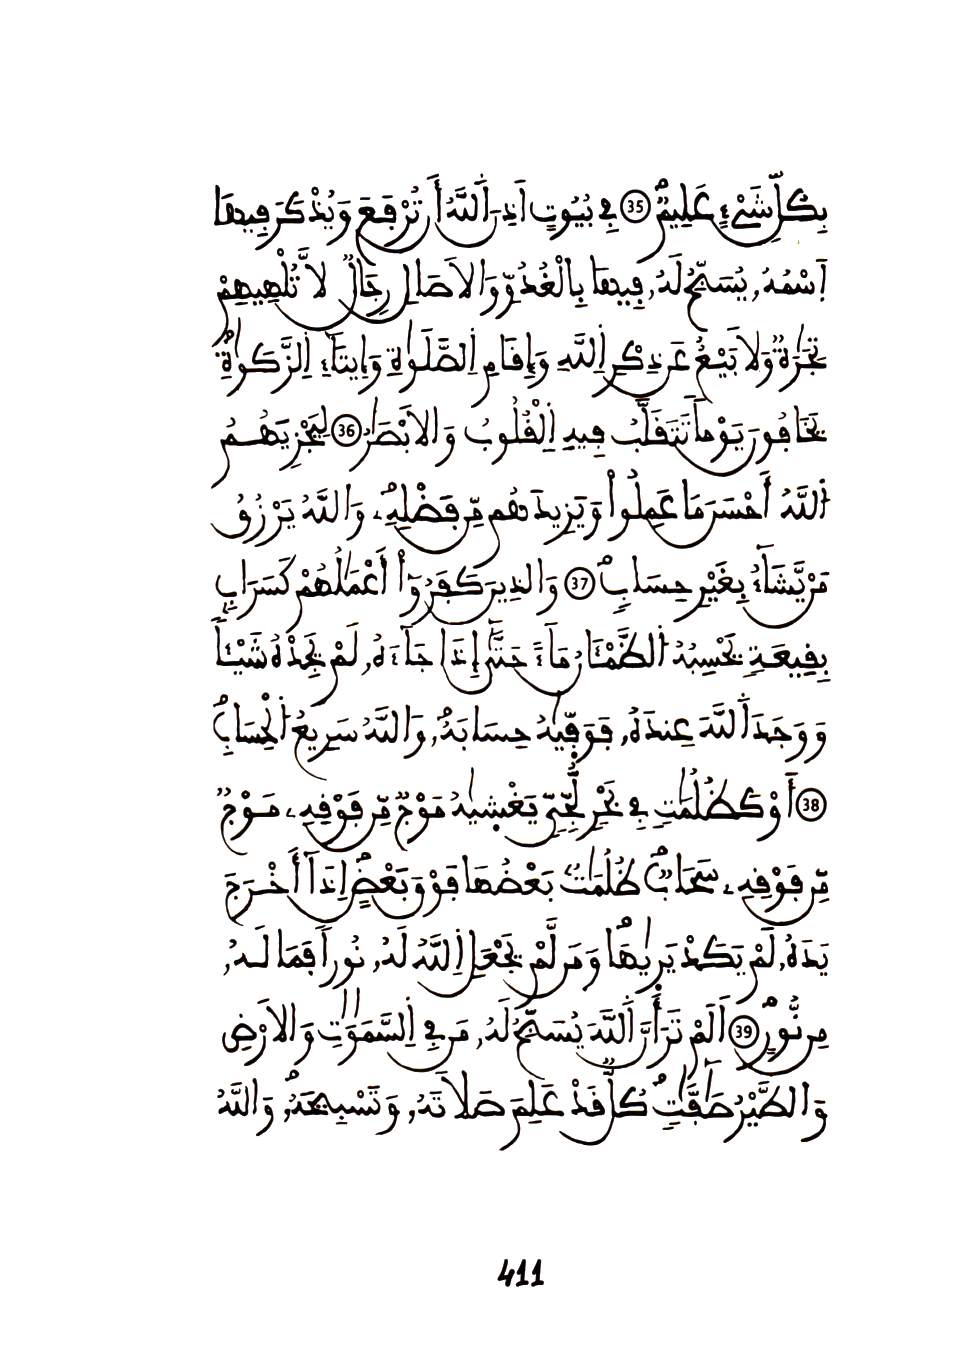 بِكُلِّ شَيْءٍ عَلِيمٌ 35 فِي بُيُوتٍ اَذِنَ اَ۬للَّهُ أَن تُرْفَعَ وَيُذْكَرَ فِيهَا
اَ۪سْمُهُۥ يُسَبِّحُ لَهُۥ فِيهَا بِالْغُدُوِّ وَالَاصَالِ رِجَالٌ لَّا تُلْهِيهِمْ
تِجَٰرَةٌ وَلَا بَيْعٌ عَن ذِكْرِ اِ۬للَّهِ وَإِقَامِ اِ۬لصَّلَوٰةِ وَإِيتَآءِ اِ۬لزَّكَوٰةِ
يَخَافُونَ يَوْماً تَتَقَلَّبُ فِيهِ اِ۬لْقُلُوبُ وَالَابْصَٰرُ 36 لِيَجْزِيَهُمُ
اُ۬للَّهُ أَحْسَنَ مَا عَمِلُواْ وَيَزِيدَهُم مِّن فَضْلِهِۦ وَاللَّهُ يَرْزُقُ
مَنْ يَّشَآءُ بِغَيْرِ حِسَابٍ 37 وَالذِينَ كَفَرُوٓاْ أَعْمَٰلُهُمْ كَسَرَابٍ
بِقِيعَةٍ يَحْسِبُهُ اُ۬لظَّمْـَٔانُ مَآءً حَتَّىٰٓ إِذَا جَآءَهُۥ لَمْ يَجِدْهُ شَيْـٔاً
وَوَجَدَ اَ۬للَّهَ عِندَهُۥ فَوَفّ۪يٰهُ حِسَابَهُۥ وَاللَّهُ سَرِيعُ اُ۬لْحِسَابِ
38 أَوْ كَظُلُمَٰتٍ فِي بَحْرٍ لُّجِّيٍّ يَغْش۪يٰهُ مَوْجٌ مِّن فَوْقِهِۦ مَوْجٌ
مِّن فَوْقِهِۦ سَحَابٌ ظُلُمَٰتُۢ بَعْضُهَا فَوْقَ بَعْضٍ اِذَآ أَخْرَجَ
يَدَهُۥ لَمْ يَكَدْ يَر۪يٰهَا وَمَن لَّمْ يَجْعَلِ اِ۬للَّهُ لَهُۥ نُوراً فَمَا لَهُۥ
مِن نُّورٍ 39 اَلَمْ تَرَ أَنَّ اَ۬للَّهَ يُسَبِّحُ لَهُۥ مَن فِي اِ۬لسَّمَٰوَٰتِ وَالَارْضِ
وَالطَّيْرُ صَٰٓفَّٰتٍ كُلٌّ قَدْ عَلِمَ صَلَاتَهُۥ وَتَسْبِيحَهُۥ وَاللَّهُ
411